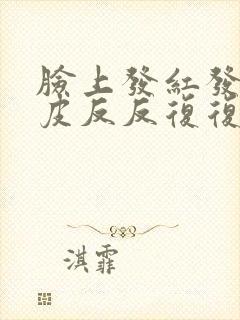 臉上發紅發
皮反反復復
淇霏